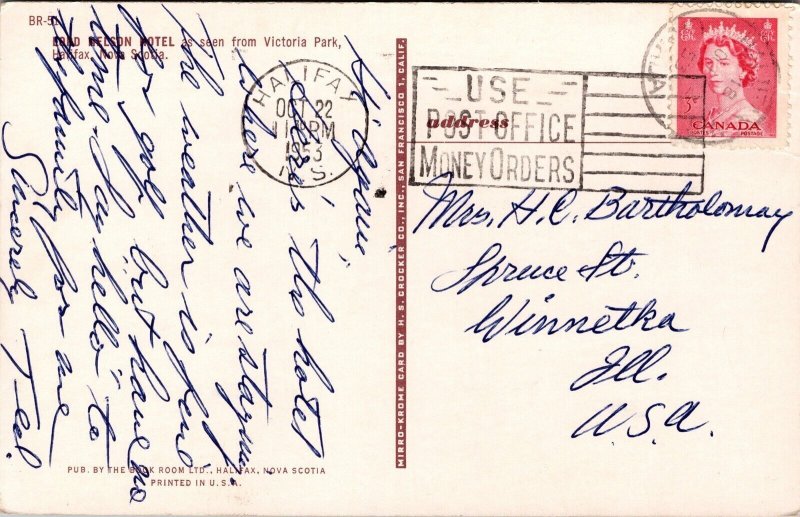 BR-51
LORD NELSON HOTEL as seen from Victoria Park,
Halifax, Nova Scotia.
Hi again,
Here's the hotel
where we are staying,
The weather is fine
for golf, but have no
time - Say hello to
family for me
Sincerely, Ted.
PUB. BY THE BOOK ROOM LTD., HALIFAX, NOVA SCOTIA
PRINTED IN U.S.A.
MIRRO-KROME CARD BY H. S. CROCKER CO., INC., SAN FRANCISCO 1, CALIF.
HALIFAX
OCT 22
11 PM
1953
N.S.
USE
POST OFFICE
MONEY ORDERS
address
3
CANADA
POSTES POSTAGE
Mrs. H. C. Bartholomay
Spruce St.
Winnetka
Ill.
U.S.A.